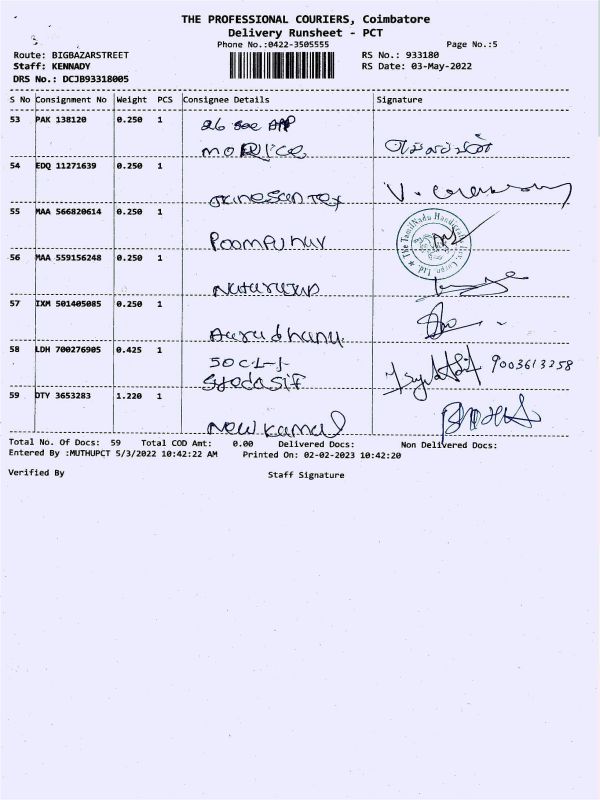 THE PROFESSIONAL COURIERS, Coimbatore
Delivery Runsheet - PCT
Phone No.:0422-3505555
Page No.:5
Route: BIGBAZARSTREET
RS No.: 933180
Staff: KENNADY
RS Date: 03-May-2022
DRS No.: DCJB93318005
S No Consignment No Weight PCS Consignee Details Signature
53 PAK 138120 0.250 1
54 EDQ 11271639 0.250 1
55 MAA 566820614 0.250 1
Poompuhar
56 MAA 559156248 0.250 1
57 IXM 501405085 0.250 1
58 LDH 700276905 0.425 1
9003613258
59 DTY 3653283 1.220 1
New Kamal
Total No. Of Docs: 59 Total COD Amt: 0.00 Delivered Docs: Non Delivered Docs:
Entered By :MUTHUPCT 5/3/2022 10:42:22 AM Printed On: 02-02-2023 10:42:20
Verified By Staff Signature